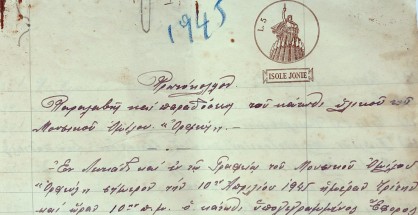 1945
L.5
ISOLE JONIE
Πρωτόκολλον
Παραλαβής και παραδόσεως του καινού υλικού του
Μουσικού Ομίλου "Ορφεύς".
Εν Λευκάδι και εν τω Γραφείω του Μουσικού Ομίλου
"Ορφεύς" σήμερον την 10ην Απριλίου 1945 ημέραν Τρίτην
και ώραν 10ην π.μ. ο υπογεγραμμένος